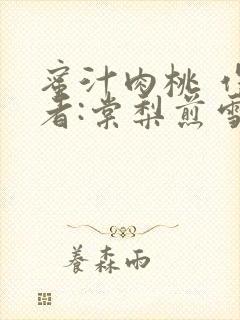 蜜汁肉桃
者:棠梨煎雪
養森雨